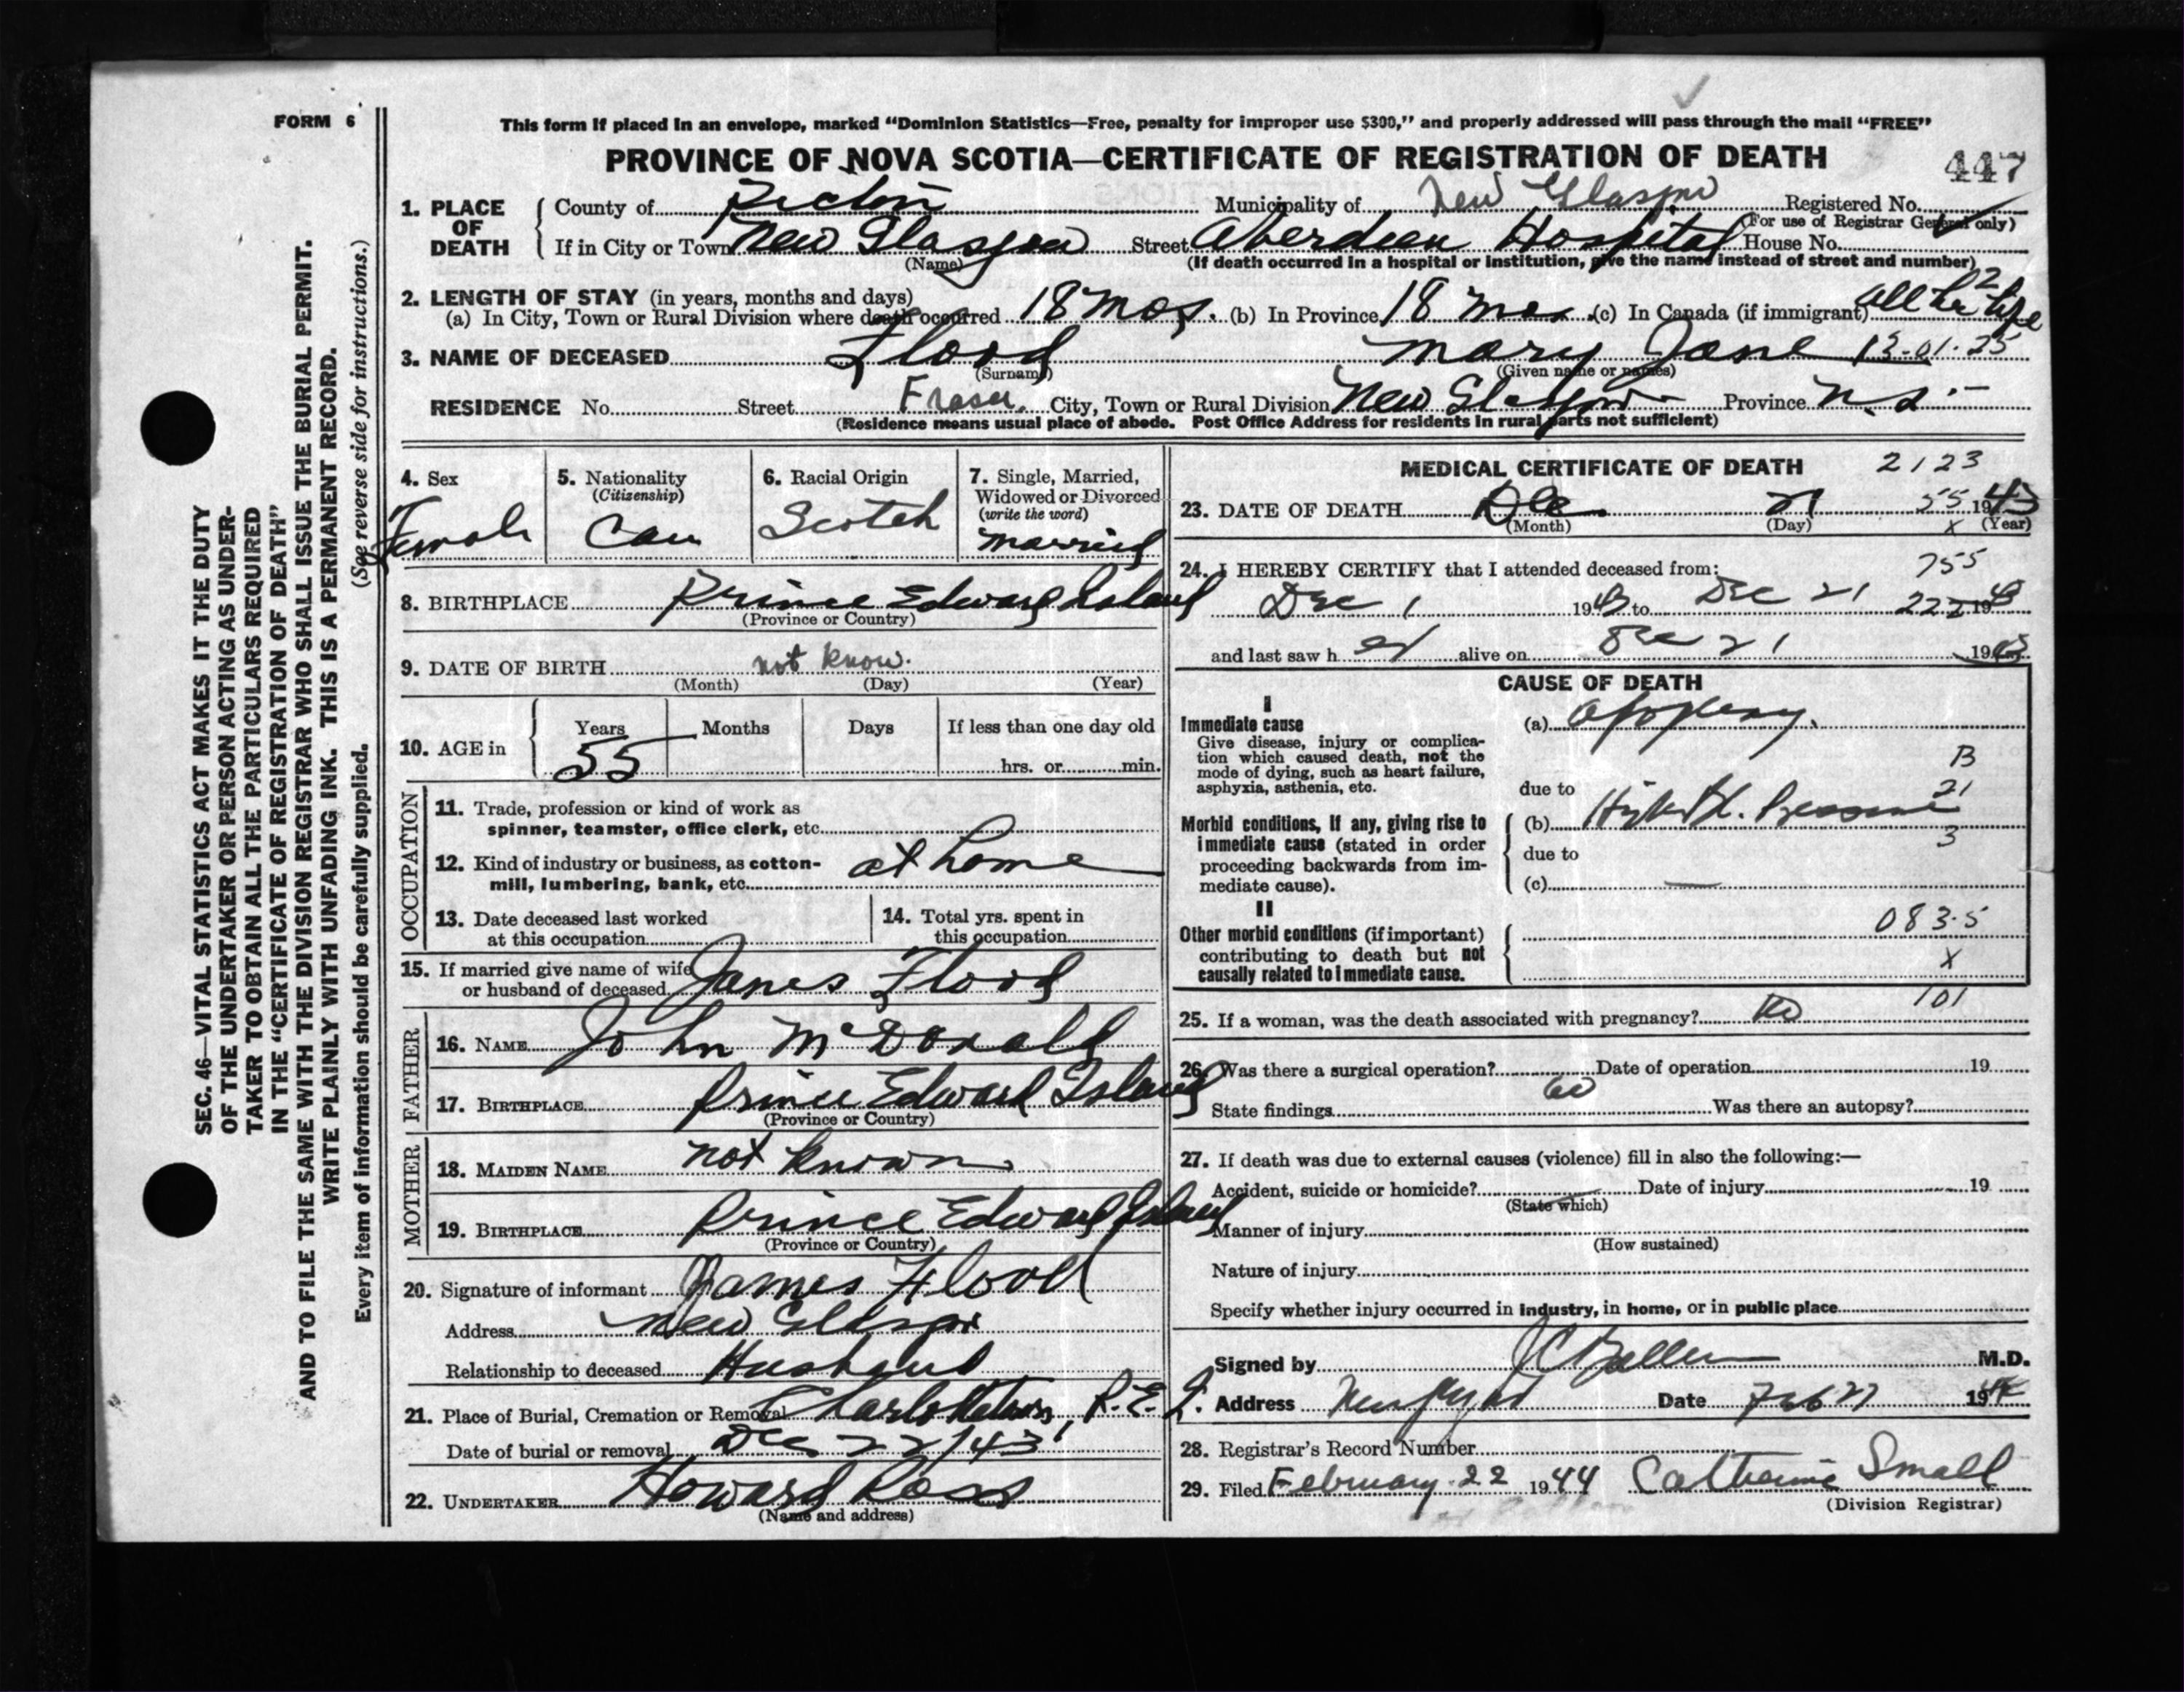 FORM 6
This form if placed in an envelope, marked "Dominion Statistics—Free, penalty for improper use $300," and properly addressed will pass through the mail "FREE"
PROVINCE OF NOVA SCOTIA—CERTIFICATE OF REGISTRATION OF DEATH
447
1. PLACE OF DEATH
County of Pictou Municipality of New Glasgow Registered No.
(For use of Registrar General only)
If in City or Town New Glasgow Street Aberdeen Hospital House No.
(Name) (If death occurred in a hospital or institution, give the name instead of street and number)
2. LENGTH OF STAY (in years, months and days)
(a) In City, Town or Rural Division where death occurred 18 mos. (b) In Province 18 mos (c) In Canada (if immigrant) all her life
2
3. NAME OF DECEASED Flood Mary Jane 13-01-25
(Surname) (Given name or names)
RESIDENCE No. Street Fraser. City, Town or Rural Division New Glasgow Province N.S.
(Residence means usual place of abode. Post Office Address for residents in rural parts not sufficient)
4. Sex
Female
5. Nationality
(Citizenship)
Can
6. Racial Origin
Scotch
7. Single, Married,
Widowed or Divorced
(write the word)
married
8. BIRTHPLACE Prince Edward Island
(Province or Country)
9. DATE OF BIRTH not know.
(Month) (Day) (Year)
10. AGE in
Years Months Days If less than one day old
55 hrs. or min.
OCCUPATION
11. Trade, profession or kind of work as
spinner, teamster, office clerk, etc.
12. Kind of industry or business, as cotton-
mill, lumbering, bank, etc. at home
13. Date deceased last worked
at this occupation
14. Total yrs. spent in
this occupation
15. If married give name of wife
or husband of deceased James Flood
FATHER
16. NAME John McDonald
17. BIRTHPLACE Prince Edward Island
(Province or Country)
MOTHER
18. MAIDEN NAME not known
19. BIRTHPLACE Prince Edward Island
(Province or Country)
20. Signature of informant James Flood
Address New Glasgow
Relationship to deceased Husband
21. Place of Burial, Cremation or Removal Charlottetown, P.E.I.
Date of burial or removal Dec 22/43
22. UNDERTAKER Howard Ross
(Name and address)
MEDICAL CERTIFICATE OF DEATH 2123
23. DATE OF DEATH Dec 21 55 1943
(Month) (Day) x (Year)
24. I HEREBY CERTIFY that I attended deceased from: 755
Dec 1 1943 to Dec 21 222 1943
and last saw h er alive on Dec 21 1943
CAUSE OF DEATH
I
Immediate cause
Give disease, injury or complica-
tion which caused death, not the
mode of dying, such as heart failure,
asphyxia, asthenia, etc.
(a)
B
due to 21
Morbid conditions, if any, giving rise to
immediate cause (stated in order
proceeding backwards from im-
mediate cause).
(b) High Bl. Pressure
3
due to
(c) —
II
Other morbid conditions (if important)
contributing to death but not
causally related to immediate cause.
083.5
x
101
25. If a woman, was the death associated with pregnancy? No
26. Was there a surgical operation? Date of operation 19
State findings Was there an autopsy?
27. If death was due to external causes (violence) fill in also the following:—
Accident, suicide or homicide? Date of injury 19
(State which)
Manner of injury
(How sustained)
Nature of injury
Specify whether injury occurred in industry, in home, or in public place
Signed by M.D.
Address Date 1944
28. Registrar's Record Number
29. Filed February 22 1944 Catherine Small
(Division Registrar)
SEC. 46—VITAL STATISTICS ACT MAKES IT THE DUTY
OF THE UNDERTAKER OR PERSON ACTING AS UNDER-
TAKER TO OBTAIN ALL THE PARTICULARS REQUIRED
IN THE "CERTIFICATE OF REGISTRATION OF DEATH"
AND TO FILE THE SAME WITH THE DIVISION REGISTRAR WHO SHALL ISSUE THE BURIAL PERMIT.
WRITE PLAINLY WITH UNFADING INK. THIS IS A PERMANENT RECORD.
Every item of information should be carefully supplied. (See reverse side for instructions.)